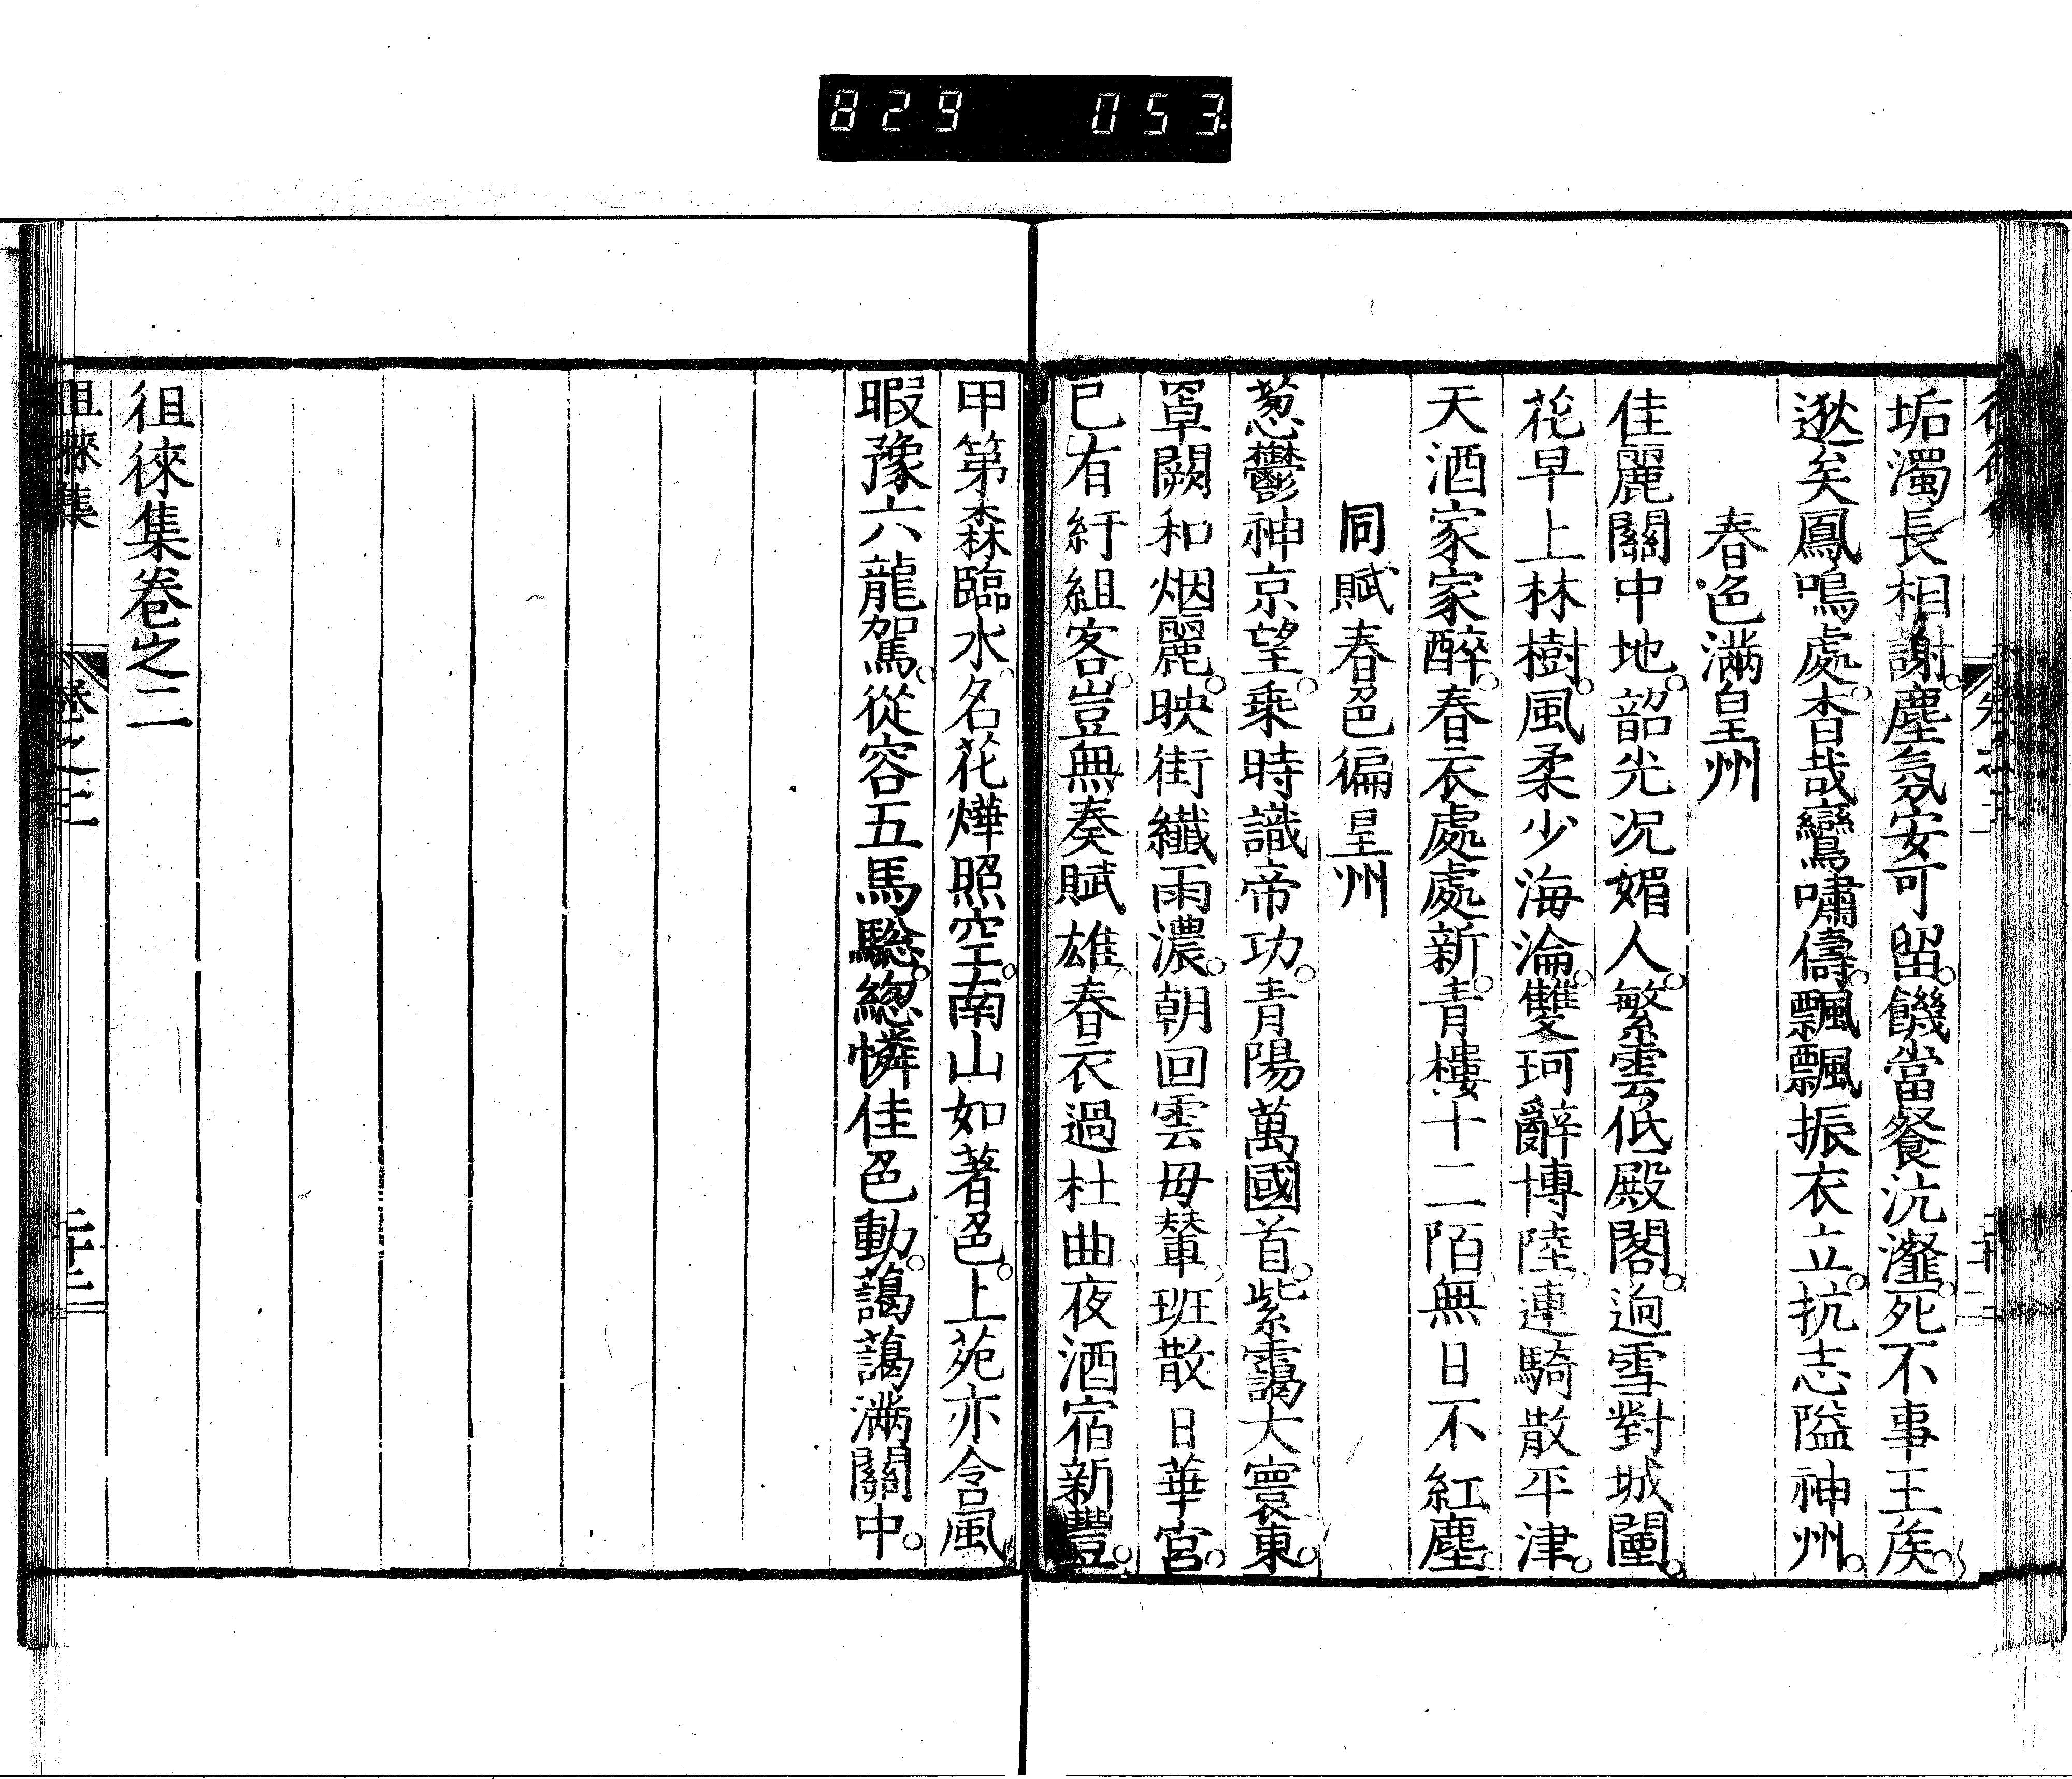 829 053
垢濁長相謝塵氛安可留饑當餐沆瀣死不事王侯
逖矣鳳鳴處杳哉鸞嘯儔飄飄振衣立抗志隘神州
春色滿皇州
佳麗關中地韶光况媚人繁雲低殿閣逈雪對城闉
花早上林樹風柔少海淪雙珂辭博陸連騎散平津
天酒家家醉春衣處處新青樓十二陌無日不紅塵
同賦春色徧皇州
葱鬱神京望乗時識帝功青陽萬國首紫靄大寰東
罩闕和烟麗映街纎雨濃朝回雲毋輦班散日華宮
已有紆組客豈無奏賦雄春衣過杜曲夜酒宿新豐
甲第森臨水名花燁照空南山如著色上苑亦含風
暇豫六龍駕從容五馬驄緫憐佳色動藹藹滿關中
徂徠集卷之二
徂徠集 卷之二 二十二